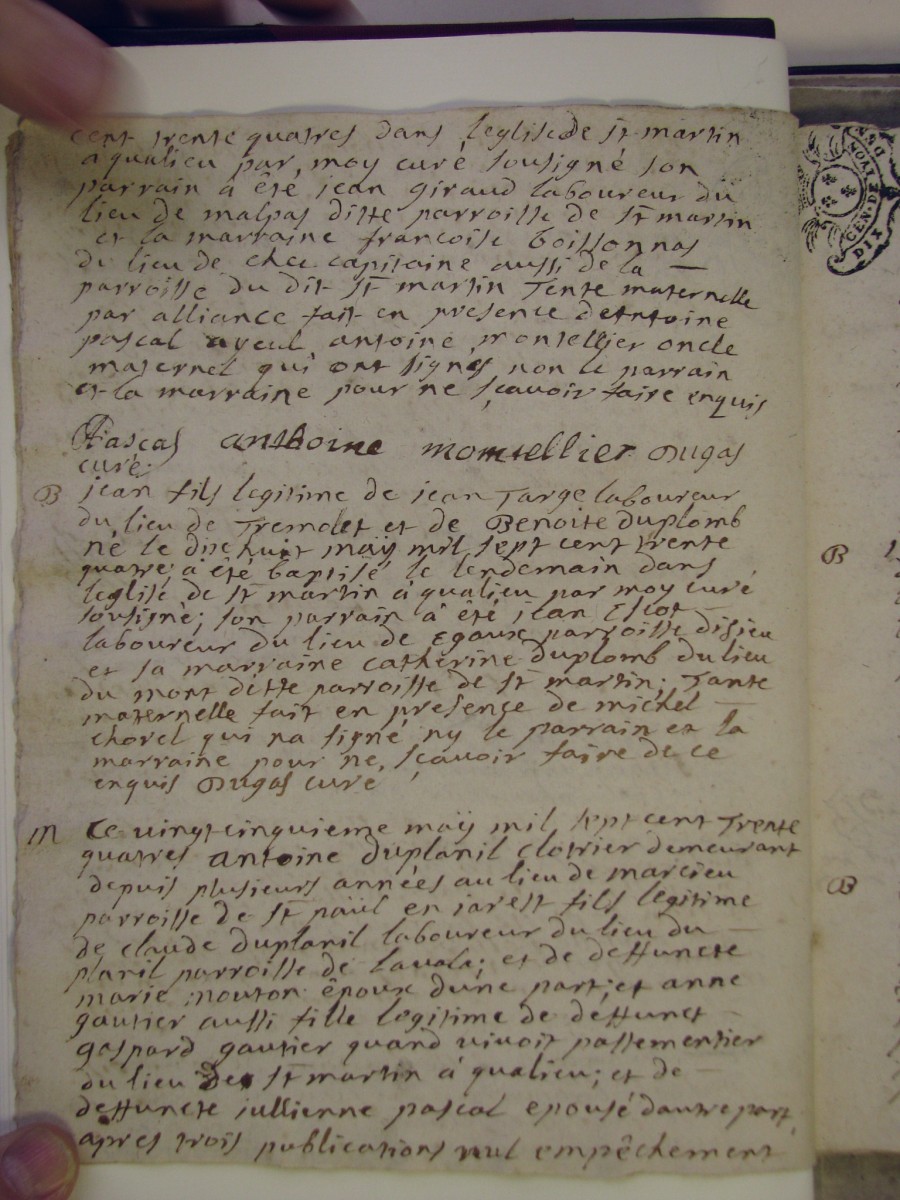 cent trente quatres dans leglise de st martin
a qualieu par moy curé sousigné son
parrain à été jean giraud laboureur du
lieu de malpas ditte parroisse de st martin
et la marraine francoise boissonnas
du lieu de chee capitaine aussi de la
parroisse du dit st martin Tente maternelle
par alliance fait en presence dantoine
pascal ayeul antoine montellier oncle
maternel qui ont signés non le parrain
et la marraine pour ne sçavoir faire enquis
Pascal anthoine montellier Dugas
curé
B jean fils legitime de jean Targe laboureur
du lieu de Tremolet et de Benoite duplomb
né le dix huit maÿ mil sept cent trente
quatre à été baptisé le lendemain dans
leglise de st martin a qualieu par moy curé
sousigné; son parrain à été jean
laboureur du lieu de Egaux parroisse disieu
et sa marraine catherine duplomb du lieu
du mont ditte parroisse de st martin; Tante
maternelle fait en presence de michel
chorel qui na signé ny le parrain et la
marraine pour ne sçavoir faire de ce
enquis Dugas curé
B
m Le vingt cinquieme maÿ mil sept cent Trente
quatres antoine duplanil clotrier demeurant
depuis plusieurs années au lieu de marcieu
B
parroisse de st paül en jarest fils legitime
de claude duplanil laboureur du lieu du
planil parroisse de lavala; et de deffuncte
marie mouton époux dune part; et anne
gautier aussi fille legitime de deffunct
gaspard gautier quand vivoit passementier
du lieu de st martin à qualieu; et de
deffuncte jullienne pascal epousé dautre part
apres trois publications nul empêchement
GENDE
LYON
DIX